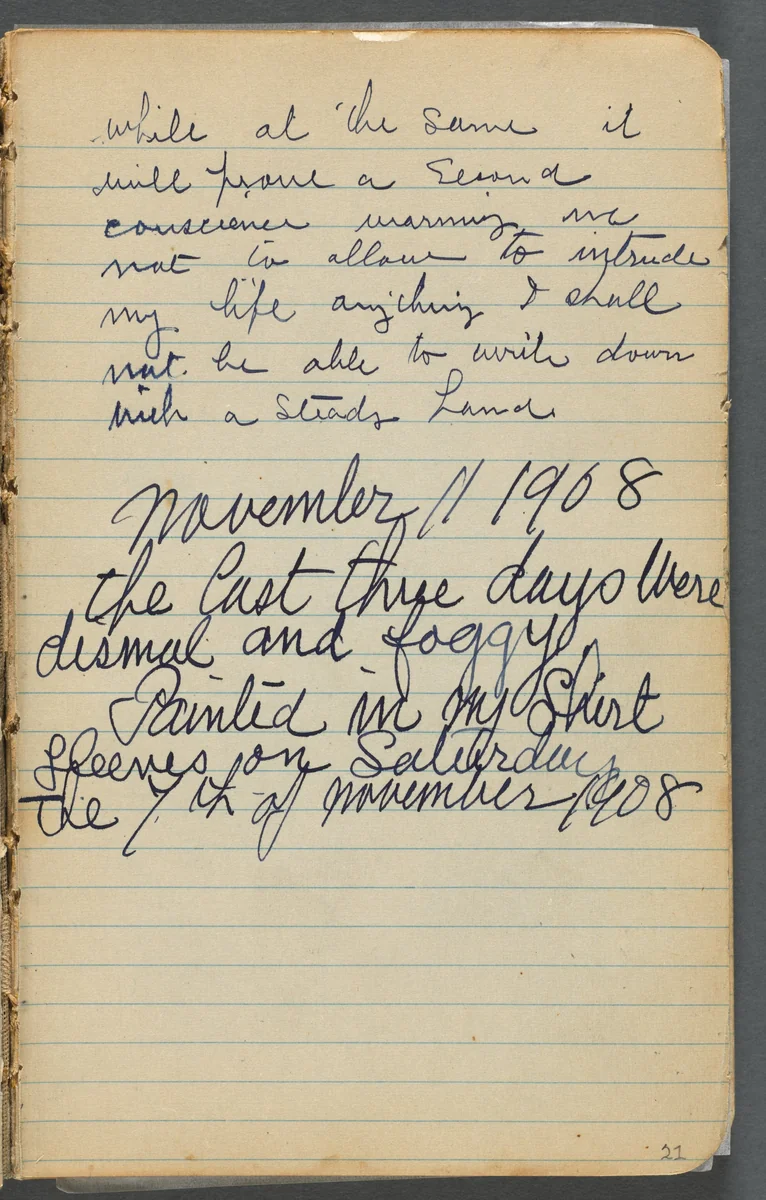 while at the same it
will prove a Second
conscience warning me
not to allow to intrude
my life anything I shall
not be able to write down
with a steady hand.
November 11 1908
the last three days Were
dismal and foggy,
Painted in my Shirt
Sleeves on Saturday
the 7th of november 1908
21